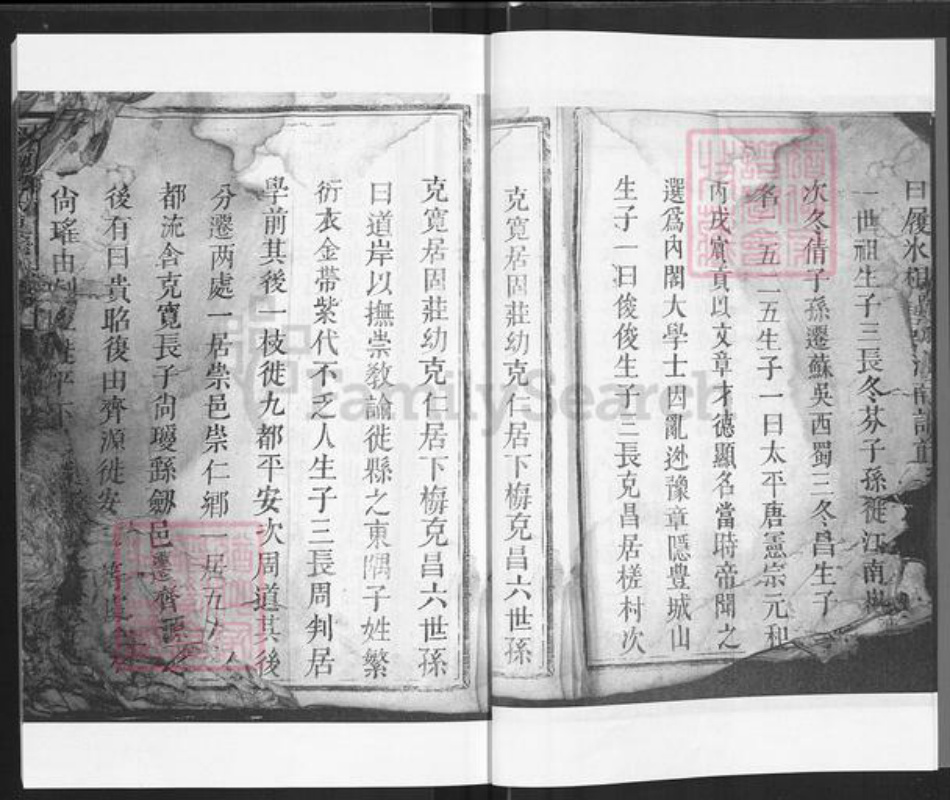 曰履水
一世祖生子三長冬芬子孫徙江南
次冬倩子孫遷蘇吳西蜀三冬昌生子
名 五 二五生子一曰太平唐憲宗元和
丙戌 貢以文章才德顯名當時帝聞之
選爲內閣大學士因亂逊豫章隱豊城山
生子一曰俊俊生子三長克昌居槎村次
克寬居固莊幼克仁居下梅克昌六世孫
克寬居固莊幼克仁居下梅克昌六世孫
曰道岸以撫崇教諭徙縣之東隅子姓繁
衍衣金帶紫代不乏人生子三長周判居
學前其後一枝徙九都平安次周道其後
分遷两處一居崇邑崇仁鄉 居五
都流舍克寬長子尙瓊繇劔邑遷齊源
後有曰貴
復由齊源徙安
尙瑤由
FamilySearch